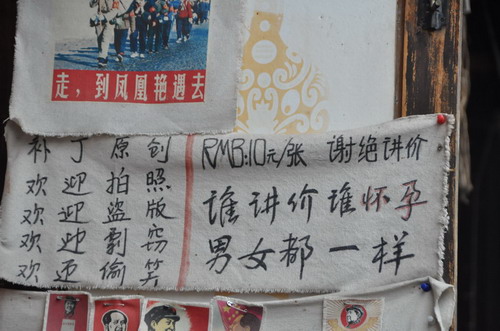 走，到凤凰艳遇去
补丁原创
欢迎拍照
欢迎盗版
欢迎剽窃
欢迎偷笑
RMB:10元/张 谢绝讲价
谁讲价谁怀孕
男女都一样